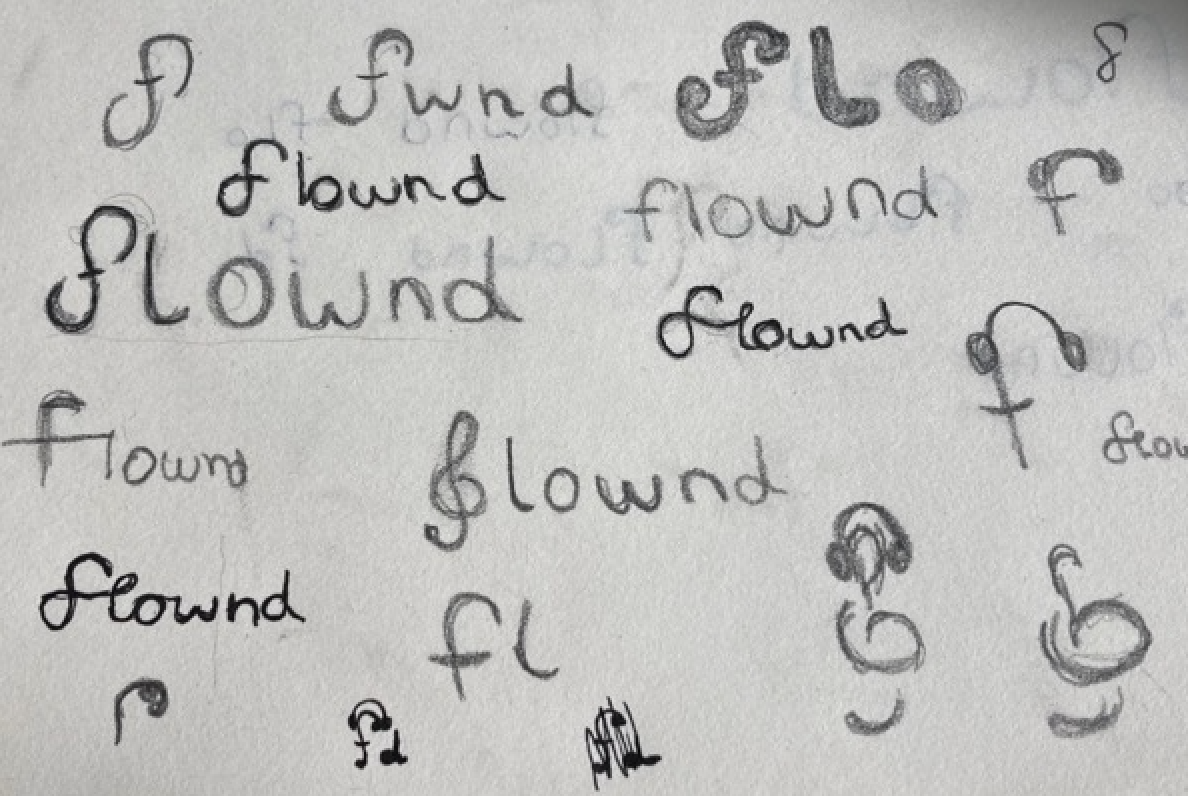 f fwnd flo 8
flownd flownd f
flownd
flownd f
flownd flow
flownd
flownd
fl
fd